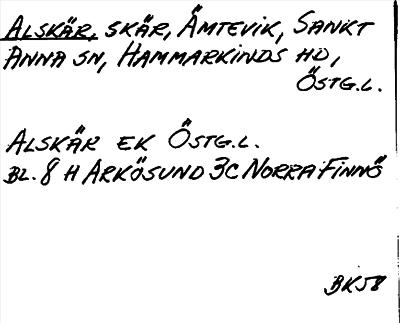 ALSKÄR, SKÄR, ÄMTEVIK, SANKT
ANNA SN, HAMMARKINDS HD,
ÖSTG.L.
ALSKÄR EK ÖSTG.L.
BL. 8 H ARKÖSUND 3C NORRA FINNÖ
BKJ8